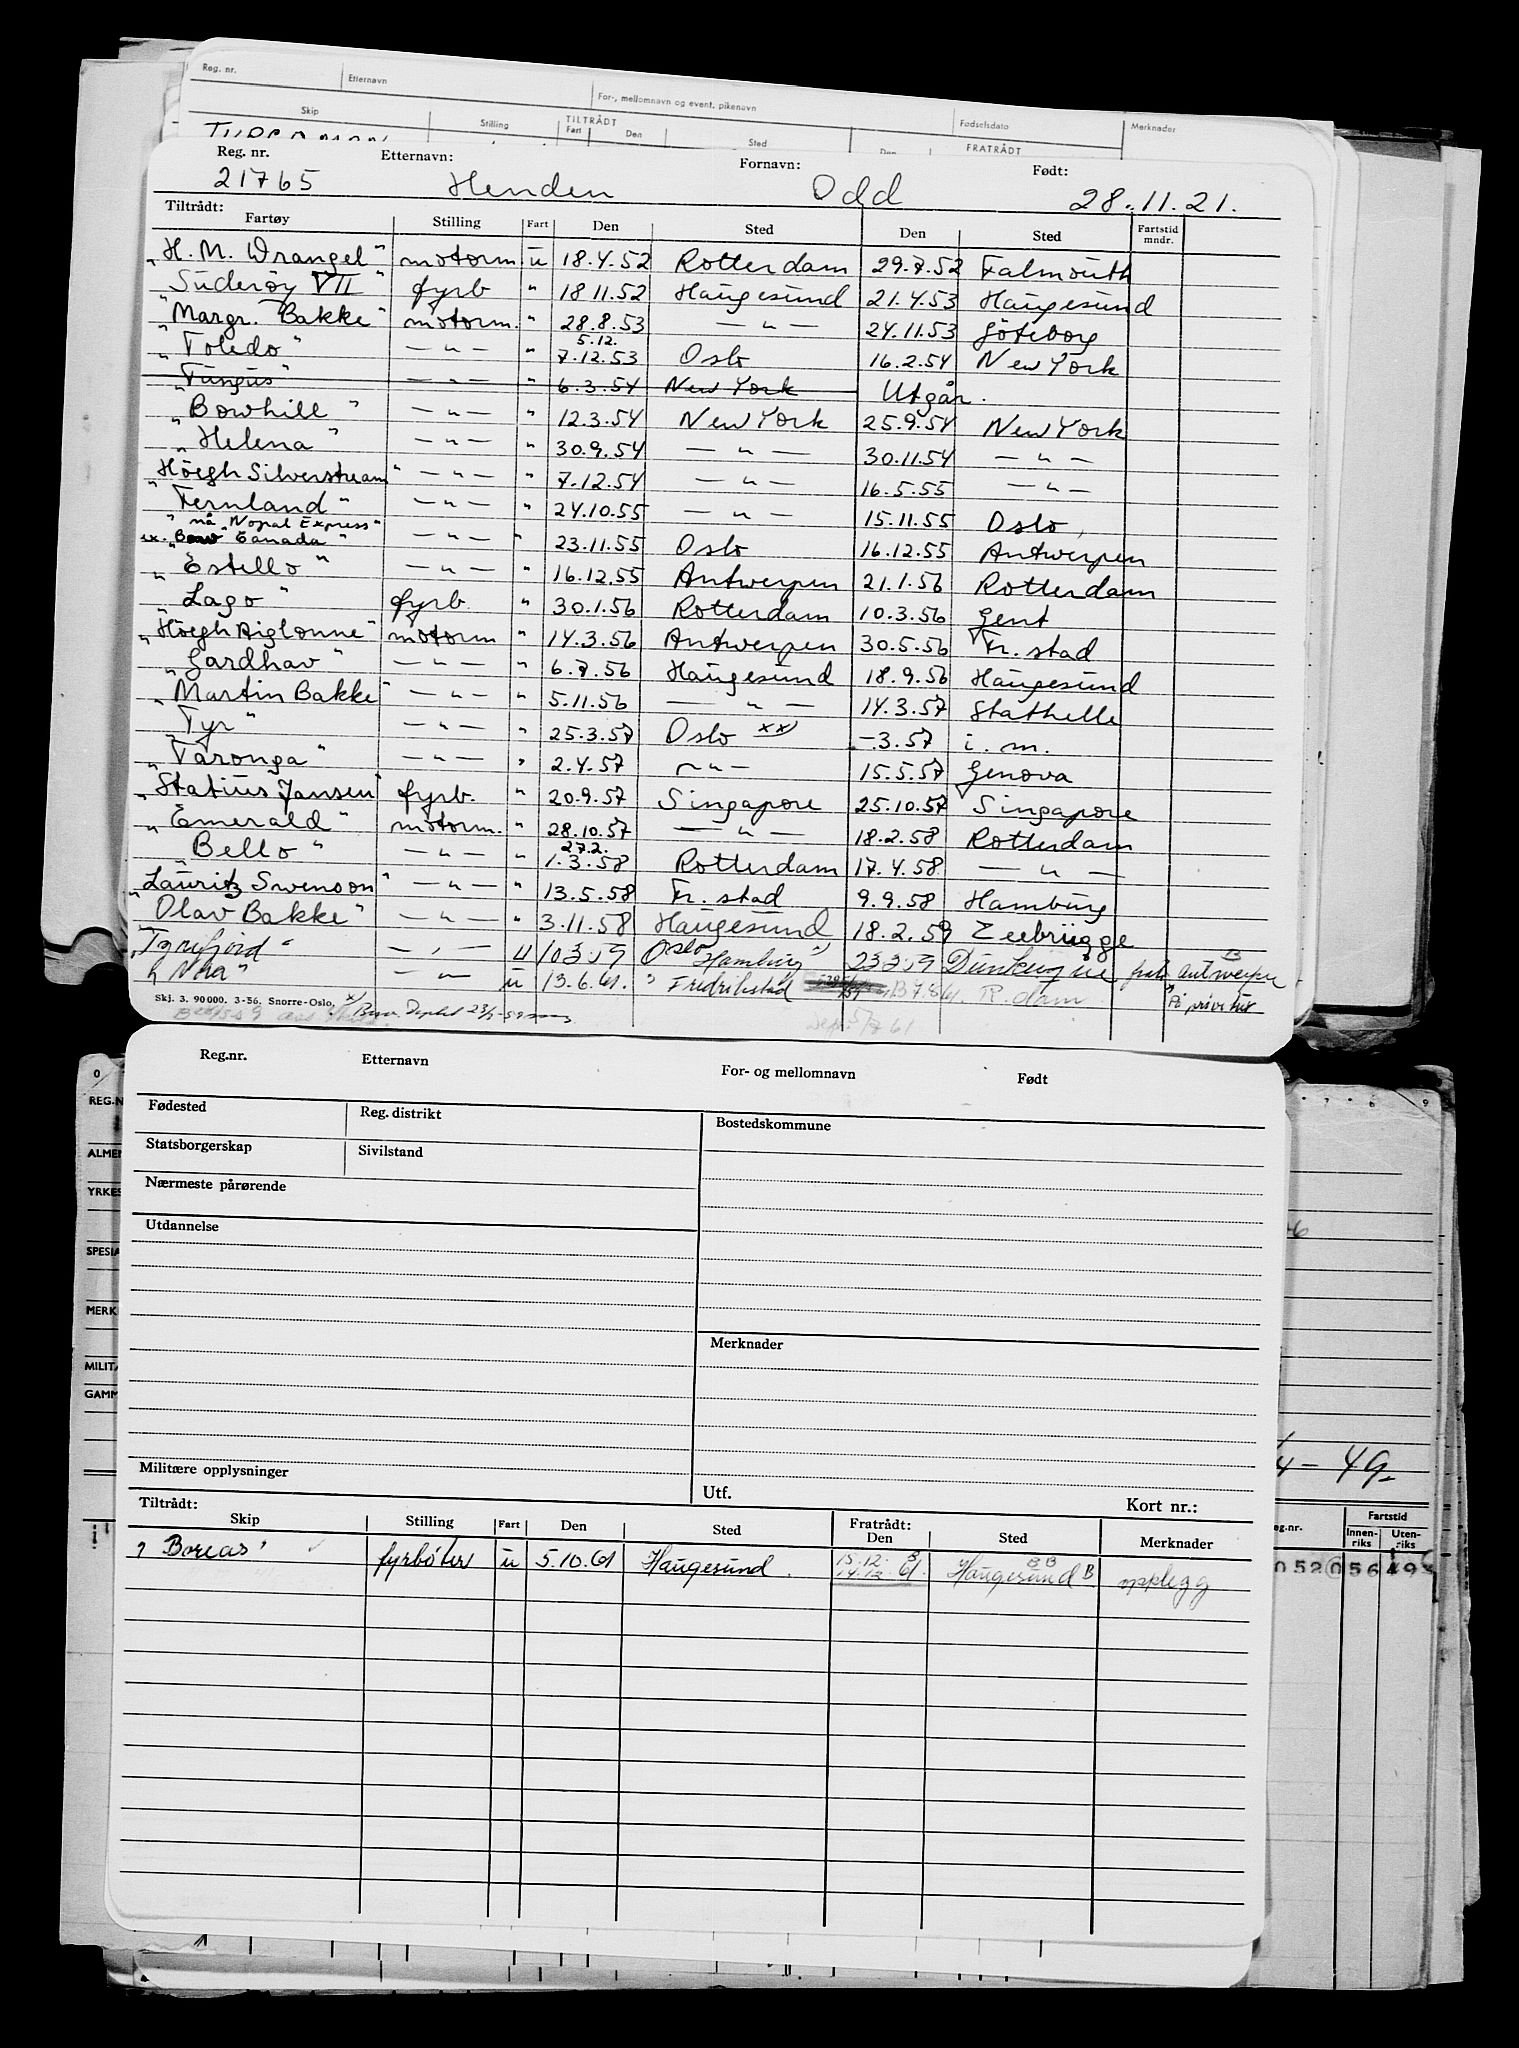 Reg. nr. Etternavn For-, mellomnavn og event. pikenavn Fødselsdato Merknader
Skip Stilling TILTRÅDT Fart Den Sted Den FRATRÅDT
Reg. nr. Etternavn: Fornavn: Født:
21765 Henden Odd 28.11.21.
Tiltrådt:
Fartøy Stilling Fart Den Sted Den Sted Fartstid mndr.
"H. M. Wrangel" motorm u 18.4.52 Rotterdam 29.7.52 Falmouth
"Suderøy VII" fyrb " 18 11.52 Haugesund 21.4.53 Haugesund
"Margr. Bakke" motorm. " 28.8.53 — " — 24.11.53 Göteborg
"Toledo" — " — " 5.12. 7.12.53 Oslo 16.2.54 New York
"Tungus" — " — " 6.3.54 New York Utgår.
"Bowhill" — " — " 12.3.54 New York 25.9.54 New York
"Helena" — " — " 30.9.54 — " — 30.11.54 — " —
"Höegh Silverstream" — " — " 7.12.54 — " — 16.5.55 — " —
"Fernland" — " — " 24.10.55 15.11.55 Oslo
" nå "Nopal Express"
ex. "Bow Canada" — " — " 23.11.55 Oslo 16.12.55 Antwerpen
"Estello" — " — " 16.12.55 Antwerpen 21.1.56 Rotterdam
"Lago" fyrb. " 30.1.56 Rotterdam 10.3.56 Gent
"Höegh Aiglonne" motorm " 14.3.56 Antwerpen 30.5.56 Fr. stad
"Gardhav" — " — " 6.7.56 Haugesund 18.9.56 Haugesund
"Martin Bakke" — " — " 5.11.56 — " — 14.3.57 Stathelle
"Tyr" — " — " 25.3.57 Oslo xx) –3.57 i. m.
"Taronga" — " — " 2.4.57 — " — 15.5.57 Genova
"Statius Jansen" fyrb. " 20.9.57 Singapore 25.10.57 Singapore
"Emerald" motorm. " 28.10.57 — " — 18.2.58 Rotterdam
"Bello" — " — " 27.2. 1.3.58 Rotterdam 17.4.58 — " —
"Lauritz Swenson" — " — " 13.5.58 Fr. stad 9.9.58 Hamburg
"Olav Bakke" — " — " 3.11.58 Haugesund 18.2.59 Zeebrügge
"Tyrifjord" — " — u 10 3 59 Oslo Hamburg 23 3 59 Dunkerque Antwerpen
"Nora" — " — u 13.6.61. Fredrikstad B 7.8.61. R.dam På privat hus
Skj. 3. 90 000. 3-56. Snorre-Oslo.
Reg.nr. Etternavn For- og mellomnavn Født
Fødested Reg. distrikt Bostedskommune
Statsborgerskap Sivilstand
Nærmeste pårørende
Utdannelse
Merknader
Militære opplysninger Utf. Kort nr.:
Tiltrådt:
Skip Stilling Fart Den Sted Fratrådt: Den Sted Merknader
"Boreas" fyrbøter u 5.10.61 Haugesund 15.12. 14.12. 61. B Haugesund B opplegg
0 REG.N
ALMEN
YRKES
SPESIA
MERK
MILITÆ
GAMM
7 8 9
4 – 49.
Fartstid
Innen-riks Uten-riks